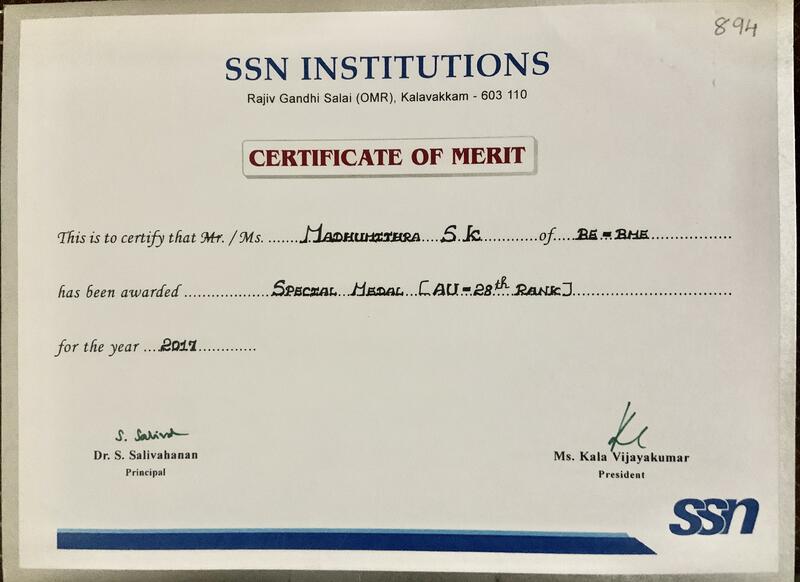 894
SSN INSTITUTIONS
Rajiv Gandhi Salai (OMR), Kalavakkam - 603 110
CERTIFICATE OF MERIT
This is to certify that Mr. / Ms. ........MADHUMITHRA S K..............of.....BE - BME....................
has been awarded ......................SPECIAL MEDAL [AU - 28th RANK]........................................
for the year ....2017..............
S. Saliva
Dr. S. Salivahanan
Principal
Ms. Kala Vijayakumar
President
ssn